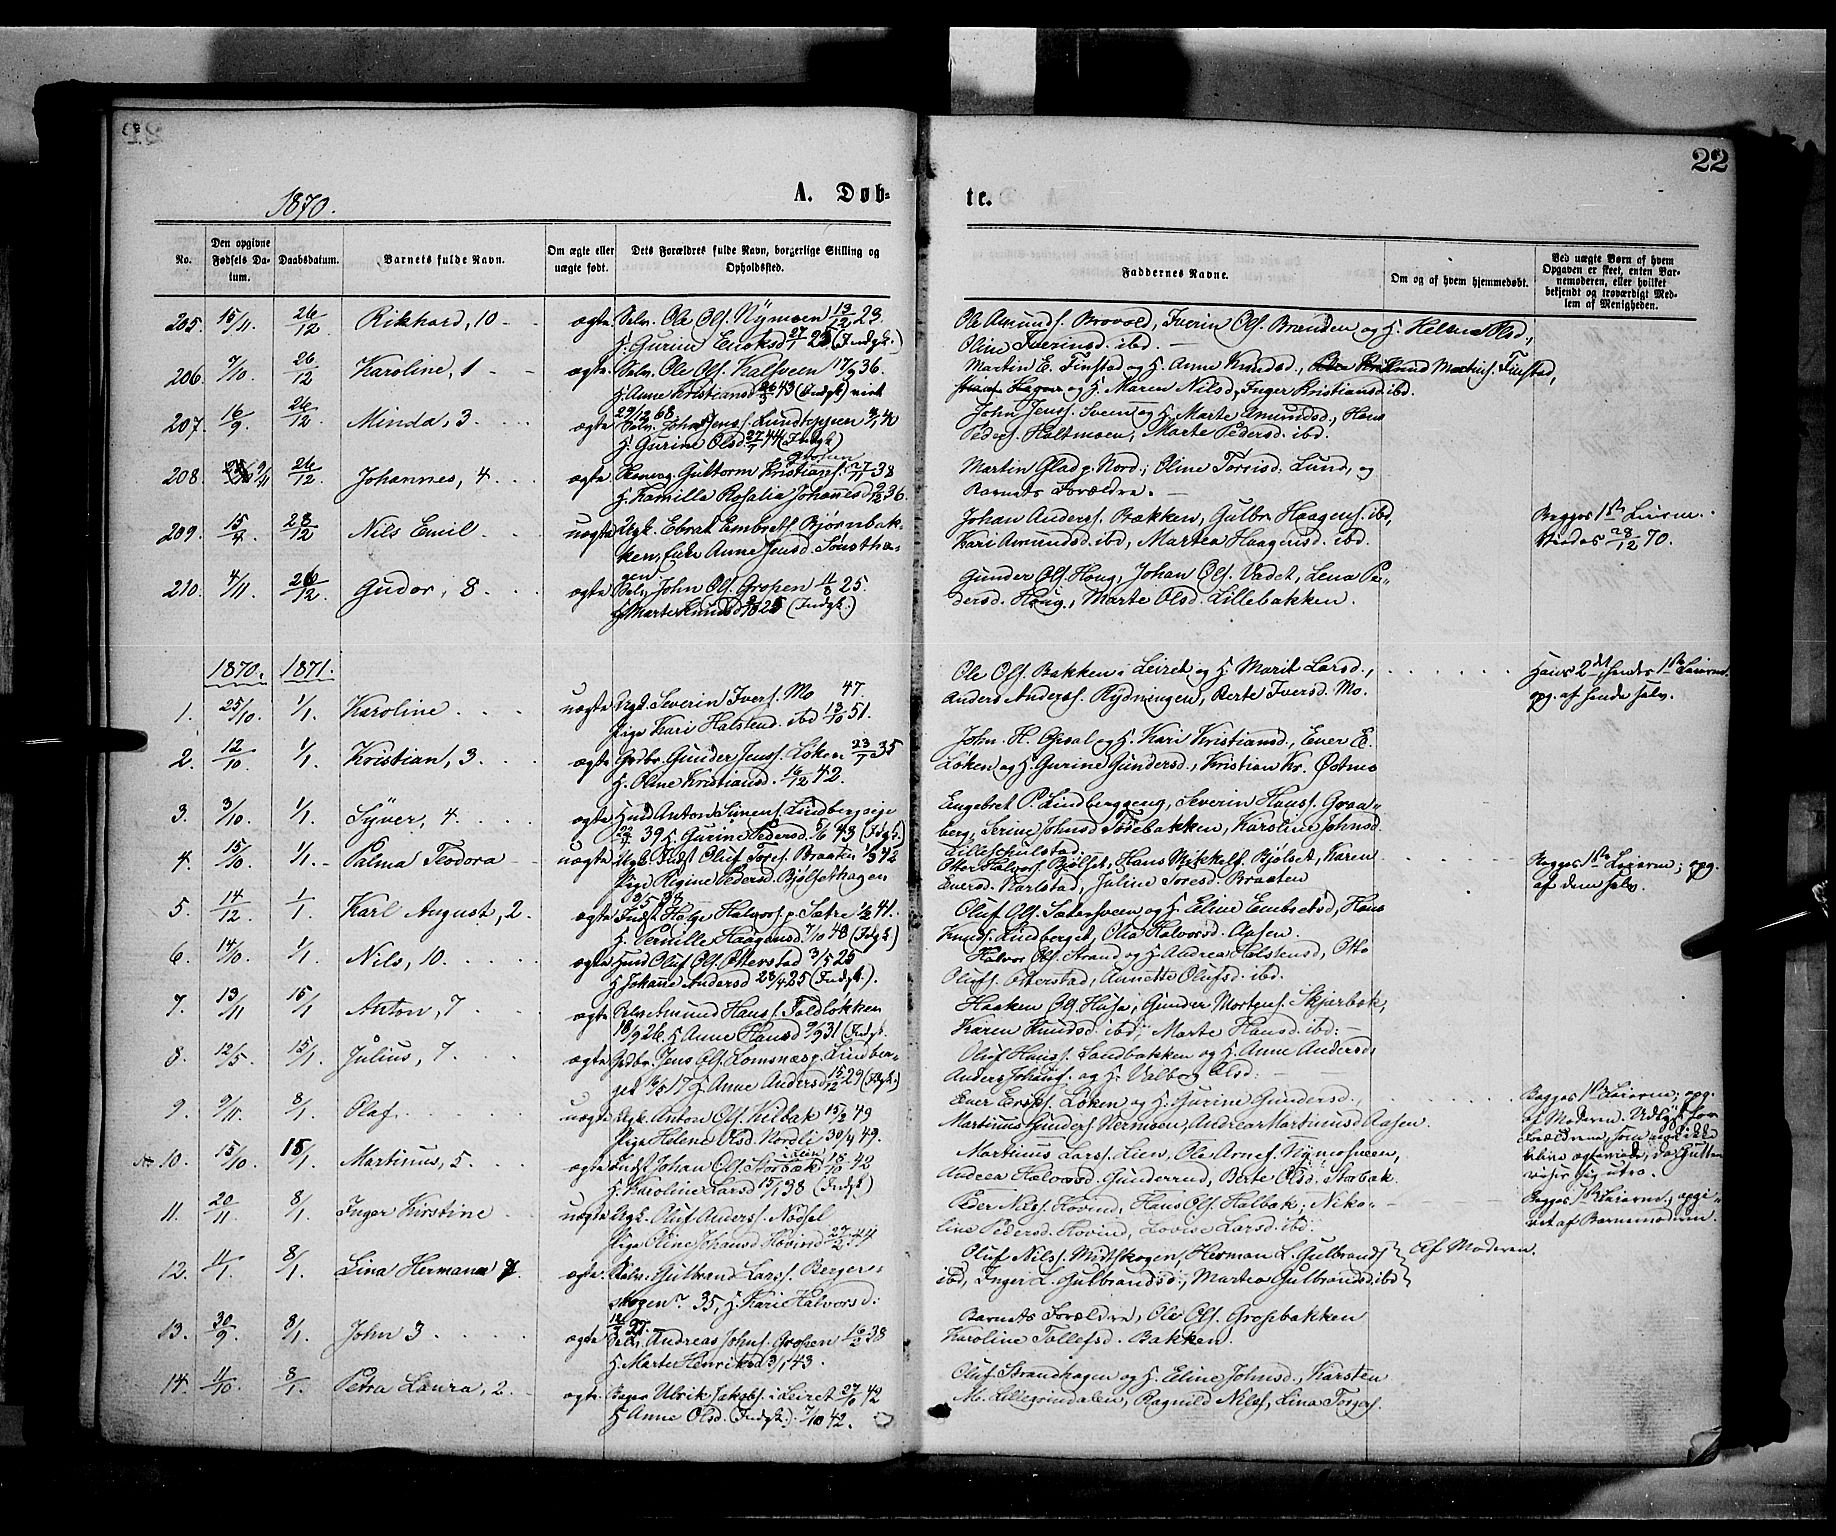 22
1870.
A. Døb-
te.
No.
Den opgivne Fødsels Da-tum.
Daabsdatum.
Barnets fulde Navn.
Om ægte eller uægte født.
Dets Forældres fulde Navn, borgerlige Stilling og Opholdssted.
Faddernes Navne.
Om og af hvem hjemmedøbt.
Ved uægte Børn af hvem Opgaven er skeet, enten Bar-nemoderen, eller hvilket bekjendt og troværdigt Med-lem af Menigheden.
205. 15/11 26/12 Rikhard, 10 ægte Selv. Ole Ols. Nÿmoen 13/12 23
H. Gurine Eriksd 27/1 25 (Indgk.)
Ole Amunds. Brovold, Iverin Ols. Brænden og H. Helene Olsd.,
Oline Iverinsd. ibd.
206. 7/10 26/12 Karoline, 1 ægte Selv. Ole Ols. Kalsveen 17/9 36.
H. Anne Kristiansd 43 (Indgk)
Martin E. Finstad og H. Anne Knudsd., Martins. Finstad,
og H. Maren Nilsd, Inger Kristiansd ibd.
207. 16/9 26/12 Minda, 3 ægte 29/12 68
Selv. Johs Jenss. Lundtoppen
H. Gurine Olsd. 27/7 44 (Indgk)
John Jenss. Sveen og H. Marte Amundsd., Hans
Peders. Haltmoen, Marte Pedersd. ibd.
208. 9/11 26/12 Johannes, 4 ægte Guttorm Kristians. 27/11 38
H. Kamilla Rosalia Johannesd 9/12 36.
Martin Glad p. Nord., Oline Torrisd. Lund, og
Barnets Forældre.
209. 15/7 28/12 Nils Emil uægte Ungk. Ebrat Embrets. Bjørnbak-
ken, Anne Jensd. Sønstha-
gen
Johan Anderss. Bækken, Gulbr. Haagens. ibd,
Kari Amundsd. ibd, Martea Haagensd. ibd.
Begges 1ste Leierm.
28/12 70.
210. 4/11 26/12 Gudor, 8 ægte Selv. John Ols. Grosen 11/8 25.
H. Marte Knudsd 25 (Indgk.)
Gunder Ols. Houg, Johan Ols. Vadet, Lena Pe-
dersd. Houg, Marte Olsd. Lillebakken.
1870. 1871.
1. 25/10 1/1 Karoline uægte Ungk. Severin Ivers. Mo 47.
Pige Kari Halstend. ibd 13/10 51.
Ole Ols. Bakken i Leiret og H. Marit Larsd.,
Anders Anderss. Rydningen, Berte Iversd. Mo.
Hans 2det hendes 1ste Leierm.
opg. af hende selv.
2. 12/10 1/1 Kristian, 3 ægte Grdbr. Gunder Jenss. Løken 23/7 35
H. Oline Kristiansd. 16/12 42.
John. H. Opsal og H. Kari Kristiansd., Ever E.
Løken og H. Gurine Gundersd., Kristian Kr. Østmo
3. 3/10 1/1 Syver, 4 ægte Husmd Anton Simens. Lindbergseje
22/2 39, H. Gurine Pedersd. 5/6 43 (Idgk.)
Engebret P. Lindberggeng, Severin Hanss. Graa-
berg, Serine Johnsd Torebakken, Karoline Johnsd.
Lilleskulstad.
4. 15/10 1/1 Palma Teodora uægte Ungk. Indst Oluf Tores. Braaten 1/3 42
Pige Regine Pedersd. Bjølsethagen
Otter Halvors. Bjølset, Hans Mikkels. Bjølset, Karen
Eversd. Karlstad, Juline Toresd. Braaten
Begges 1ste Leierm; opg.
af dem selv.
5. 14/12 1/1 Karl August, 2 ægte Indst. Helge Halvors. p. Sætre 1/2 41.
H. Pernille Haagensd. 7/10 48 (Idgk.)
Oluf Ols. Sætersveen og H. Eline Embretsd, Hans
Knuds. Lindberget, Olia Halvorsd. Aasen.
6. 14/10 1/1 Nils, 10 ægte Husmd Oluf Ols. Otterstad 3/5 25
H. Johane Andersd 23/4 25 (Indgk.).
Halvor Ols. Strand og H. Andrea Holstensd, Otto
Olufs. Otterstad, Annette Olufsd. ibd.
7. 13/11 15/1 Anton, 7 ægte Selv. Amund Hanss. Foldløkken
18/9 26. H. Anne Hansd 9/9 31 (Indgk.
Haaken Ols. Husa, Gunder Mortens. Skjærbæk,
Karen Knudsd. ibd., Marte Hansd. ibd.
8. 12/5 15/1 Julius, 7 ægte Grdbr. Jens Ols. Lomsnæs p. Lindber-
get 16/5 17 H. Anne Andersd 15/12 29 (Idgk.)
Oluf Hanss. Sandbakken og H. Anne Andersd,
Anders Johans. og H. Valborg Olsd.
9. 9/11 8/1 Olaf uægte Ungk. Anton Ols. Kilbak 15/2 49
Pige Helene Olsd. Nordli 30/4 49.
Ever Ersps. Løken og H. Gurine Gundersd.,
Martinus Gunders. Nermoen, Andrea Martinusd Aasen.
Begges 1ste Leierm; opg.
af Moderen.
10. 15/10 15/1 Martinus, 5 ægte Indst Johan Ols. Storbæk i Lien 18/10 42
H. Karoline Larsd 15/1 38 (Indgk)
Martinus Larss. Lien, Ole Arnes. Nymosveen,
Andrea Halvorsd. Gunderrud, Berte Olsd. Storbæk.
11. 20/11 8/1 Inger Kirstine uægte Ungk. Oluf Anderss. Nødsel
Pige Oline Johansd Hovind 27/2 44
Peder Nilss. Hovind, Hans Ols. Halbak, Niko-
line Pedersd. Hovin, Lovise Larsd. ibd.
Begges 1ste Leierm; opgi-
vet af Barnemoderen.
12. 11/1 8/1 Lina Hermana 7 ægte Selv. Gulbrand Larss. Berger-
skogen 35, H. Kari Halvorsd.
Oluf Nilss. Midtskogen, Herman L. Gulbrands
ibd, Inger L. Gulbrandsd., Martea Gulbrandsd. ibd
Af Moderen.
13. 30/9 8/1 John 3 ægte Selv. Andreas Johns. Grosen 16/2 38
H. Marte Henriksd 3/1 43.
Barnets Forældre, Ole Ols. Grosebakken
Karoline Tollefsd. Bakken.
14. 11/10 8/1 Petra Laura, 2 ægte Bager Ulrik Jakobs. i Leiret 27/10 42
H. Anne Olsd. (Indgk.) 7/10 42.
Oluf Strandhagen og H. Eline Johnsd., Karsten
M. Lillegrindalen, Ragnild Nilss., Lina Torges.